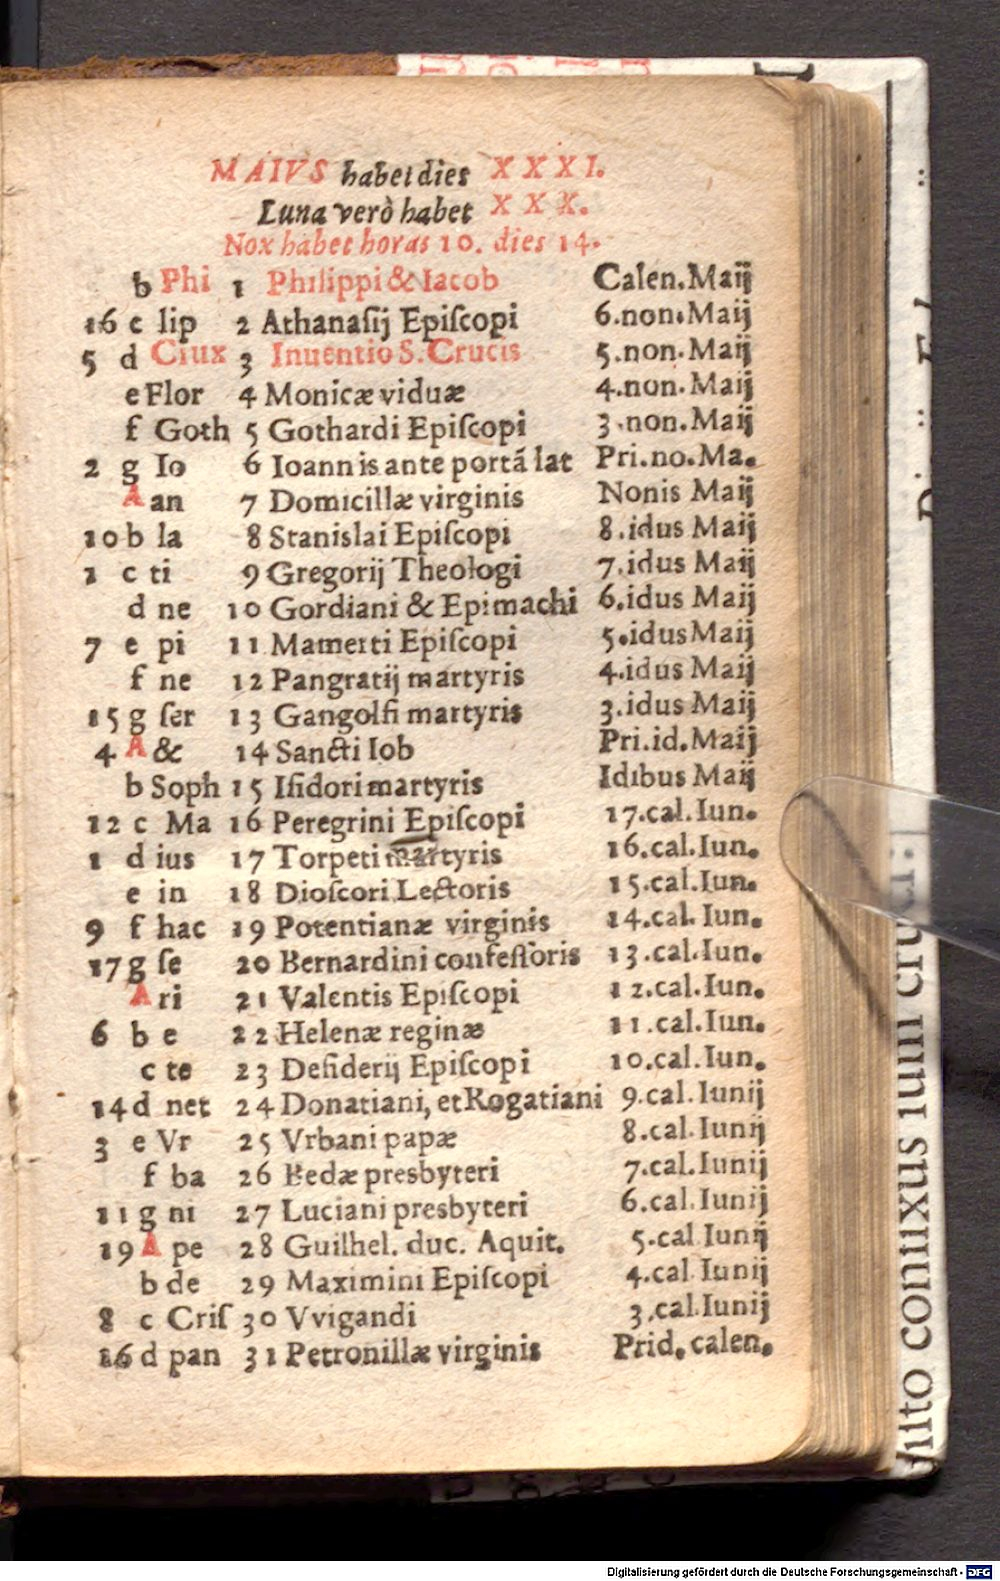 MAIVS habet dies XXXI.
Luna verò habet XXX.
Nox habet horas 10. dies 14.
b Phi 1 Philippi & Iacob Calen. Maij
16 c lip 2 Athanaſij Epiſcopi 6. non. Maij
5 d Crux 3 Inuentio S. Crucis 5. non. Maij
e Flor 4 Monicæ viduæ 4. non. Maij
f Goth 5 Gothardi Epiſcopi 3. non. Maij
2 g Io 6 Ioannis ante portã lat Pri. no. Ma.
A an 7 Domicillæ virginis Nonis Maij
10 b la 8 Stanislai Epiſcopi 8. idus Maij
1 c ti 9 Gregorij Theologi 7. idus Maij
d ne 10 Gordiani & Epimachi 6. idus Maij
7 e pi 11 Mamerti Epiſcopi 5. idus Maij
f ne 12 Pangratij martyris 4. idus Maij
15 g ſer 13 Gangolfi martyris 3. idus Maij
4 A & 14 Sancti Iob Pri. id. Maij
b Soph 15 Iſidori martyris Idibus Maij
12 c Ma 16 Peregrini Epiſcopi 17. cal. Iun.
1 d ius 17 Torpeti martyris 16. cal. Iun.
e in 18 Dioſcori Lectoris 15. cal. Iun.
9 f hac 19 Potentianæ virginis 14. cal. Iun.
17 g ſe 20 Bernardini confeſſoris 13. cal. Iun.
A ri 21 Valentis Epiſcopi 12. cal. Iun.
6 b e 22 Helenæ reginæ 11. cal. Iun.
c te 23 Deſiderij Epiſcopi 10. cal. Iun.
14 d net 24 Donatiani, et Rogatiani 9. cal. Iunij
3 e Vr 25 Vrbani papæ 8. cal. Iunij
f ba 26 Bedæ presbyteri 7. cal. Iunij
11 g ni 27 Luciani presbyteri 6. cal. Iunij
19 A pe 28 Guilhel. duc. Aquit. 5. cal. Iunij
b de 29 Maximini Epiſcopi 4. cal. Iunij
8 c Criſ 30 Vvigandi 3. cal. Iunij
16 d pan 31 Petronillæ virginis Prid. calen.
Digitalisierung gefördert durch die Deutsche Forschungsgemeinschaft - DFG